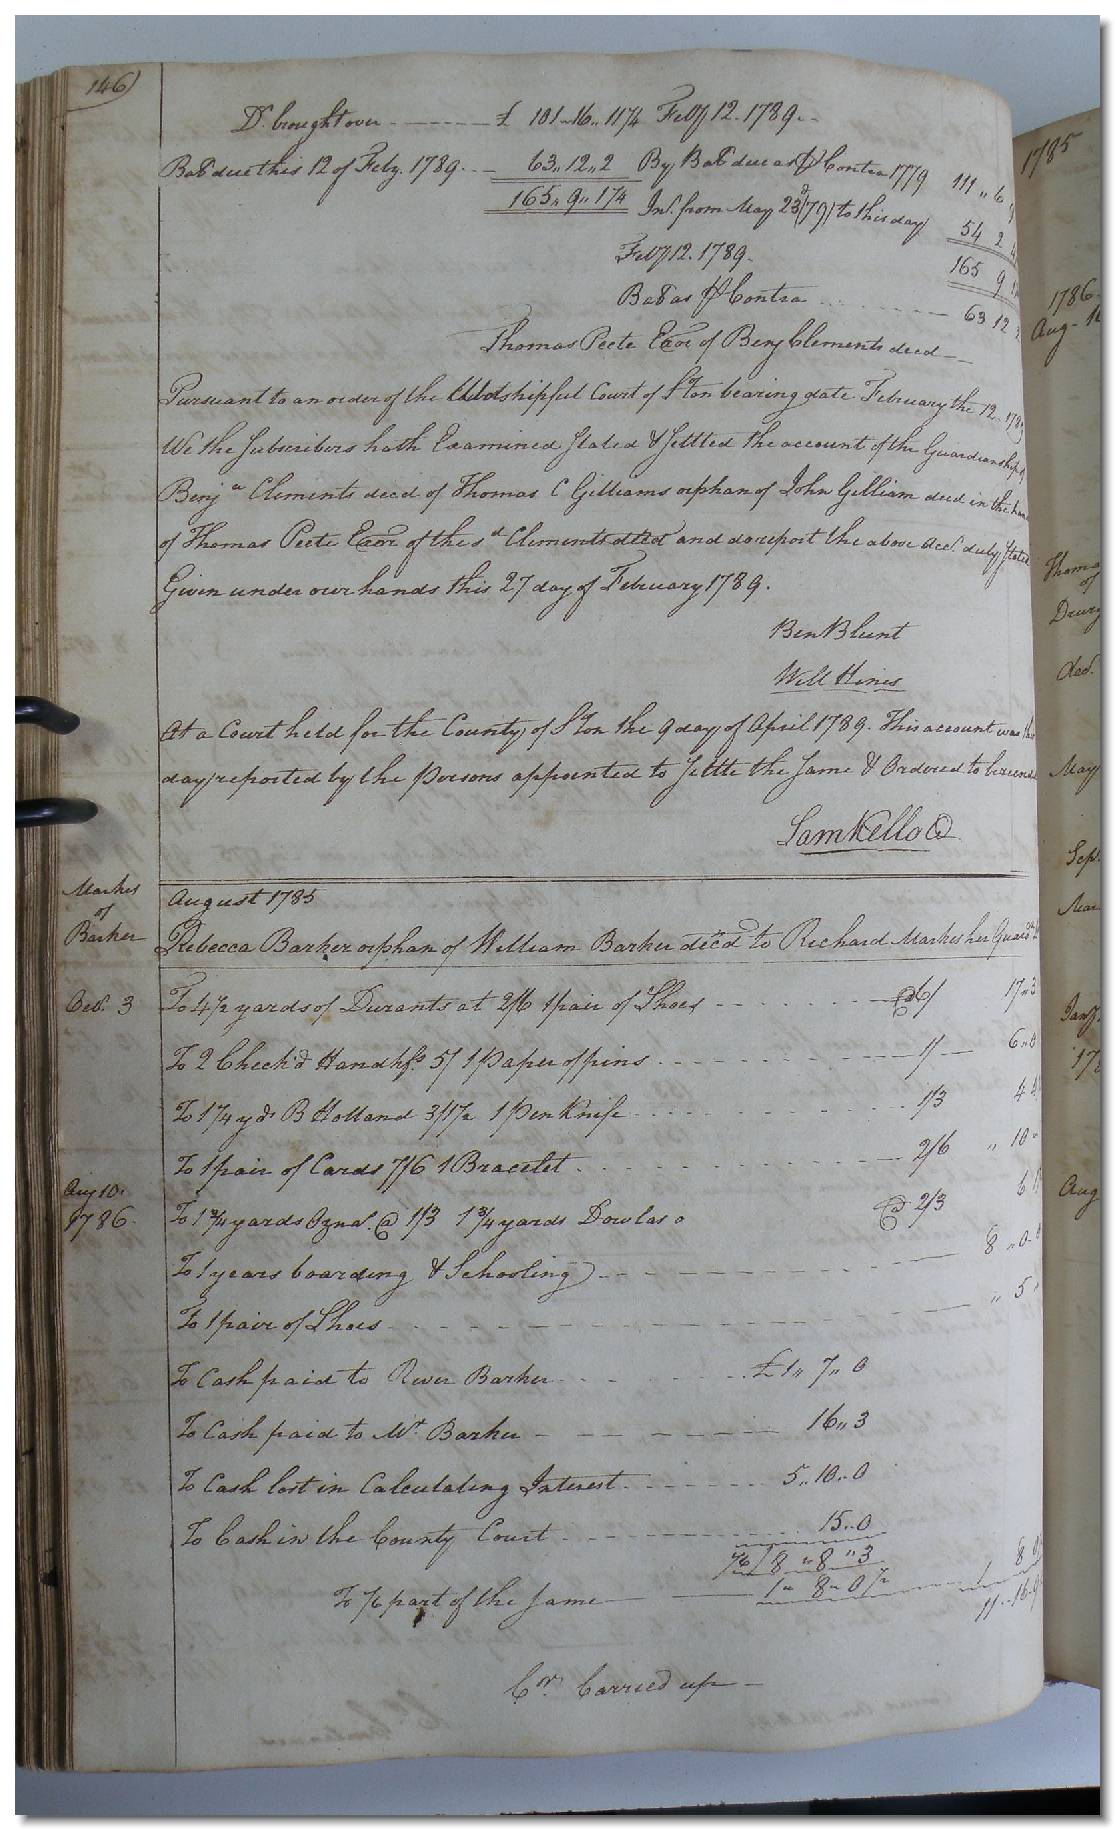 146
Dr. brought over £ 101..16..11¼ Feby 12. 1789.
Bal due this 12 of Feby. 1789. 63,,12,,2 By Bal due as P Contra 1779 111,,6
165,,9,,1¼ Int. from May 23d (79) to this day 54 2
Feby 12. 1789. 165 9
Bal as P Contra 63 12
Thomas Peete Exor of Benj Clements decd
Pursuant to an order of the Worshipful Court of S'ton bearing date February the 12. 1789
We the Subscribers hath Examined Stated & Settled the account of the Guardianship of
Benja Clements decd of Thomas C Gilliams orphan of John Gilliam decd in the
of Thomas Peete Exor of the sd Clements decd and do report the above acct. duly Stated
Given under our hands this 27 day of February 1789.
Ben Blunt
Will Hines
At a Court held for the County of S'ton the 9 day of April 1789. This account was this
day reported by the persons appointed to Settle the Same & Ordered to be
Sam Kello C
Marks
of
Barker
August 1785
Rebecca Barker orphan of William Barker decd to Richard Marks her
Oct. 3 To 4½ yards of Durants at 2/6 1 pair of Shoes @ 6/ 17..3
To 2 Check'd Handkfs. 5/ 1 Paper of pins 1/ 6..0
To 1¼ yds B Holland 3/1½ 1 Pen Knife 1/3 4
To 1 pair of Cards 7/6 1 Bracelet 2/6 ,, 10
Aug 10.
1786. To 1¾ yards Oznd. @ 1/3 1¾ yards Dowlas @ 2/3 6
To 1 years boarding & Schooling 8..0
To 1 pair of Shoes ,, 5
To Cash paid to River Barker £1,,7,,0
To Cash paid to Mr. Barker 16,,3
To Cash lost in Calculating Interest 5..10..0
To Cash in the County Court 15..0
⅙/8,,8,,3
To ⅙ part of the Same 1,,8,,0½ 1 8
11..16
Cr. Carried up
1785
1786
Aug
of
decd.
May
Sept.
Mar
Jany.
Aug